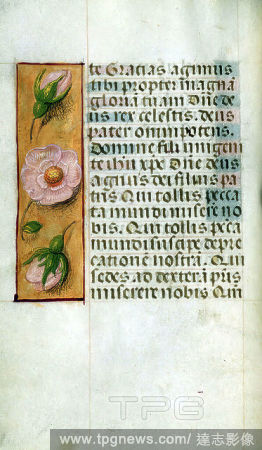 te Gracias agimus
tibi propter magnā
gloriā tuam Dñe de
us rex celestis. deus
pater omnipotens.
Domine fili unigeni
te ihu xp̄e Dñe deus
agnus dei filius pa
tris Qui tollis pecca
ta mundi miserere no
bis. Qui tollis pecca
mundi suscipe depre
cationē nostrā. Qui
sedes ad dexterā p̄ris
miserere nobis Qm̄
TPG
www.tpgnews.com/ 達志影像